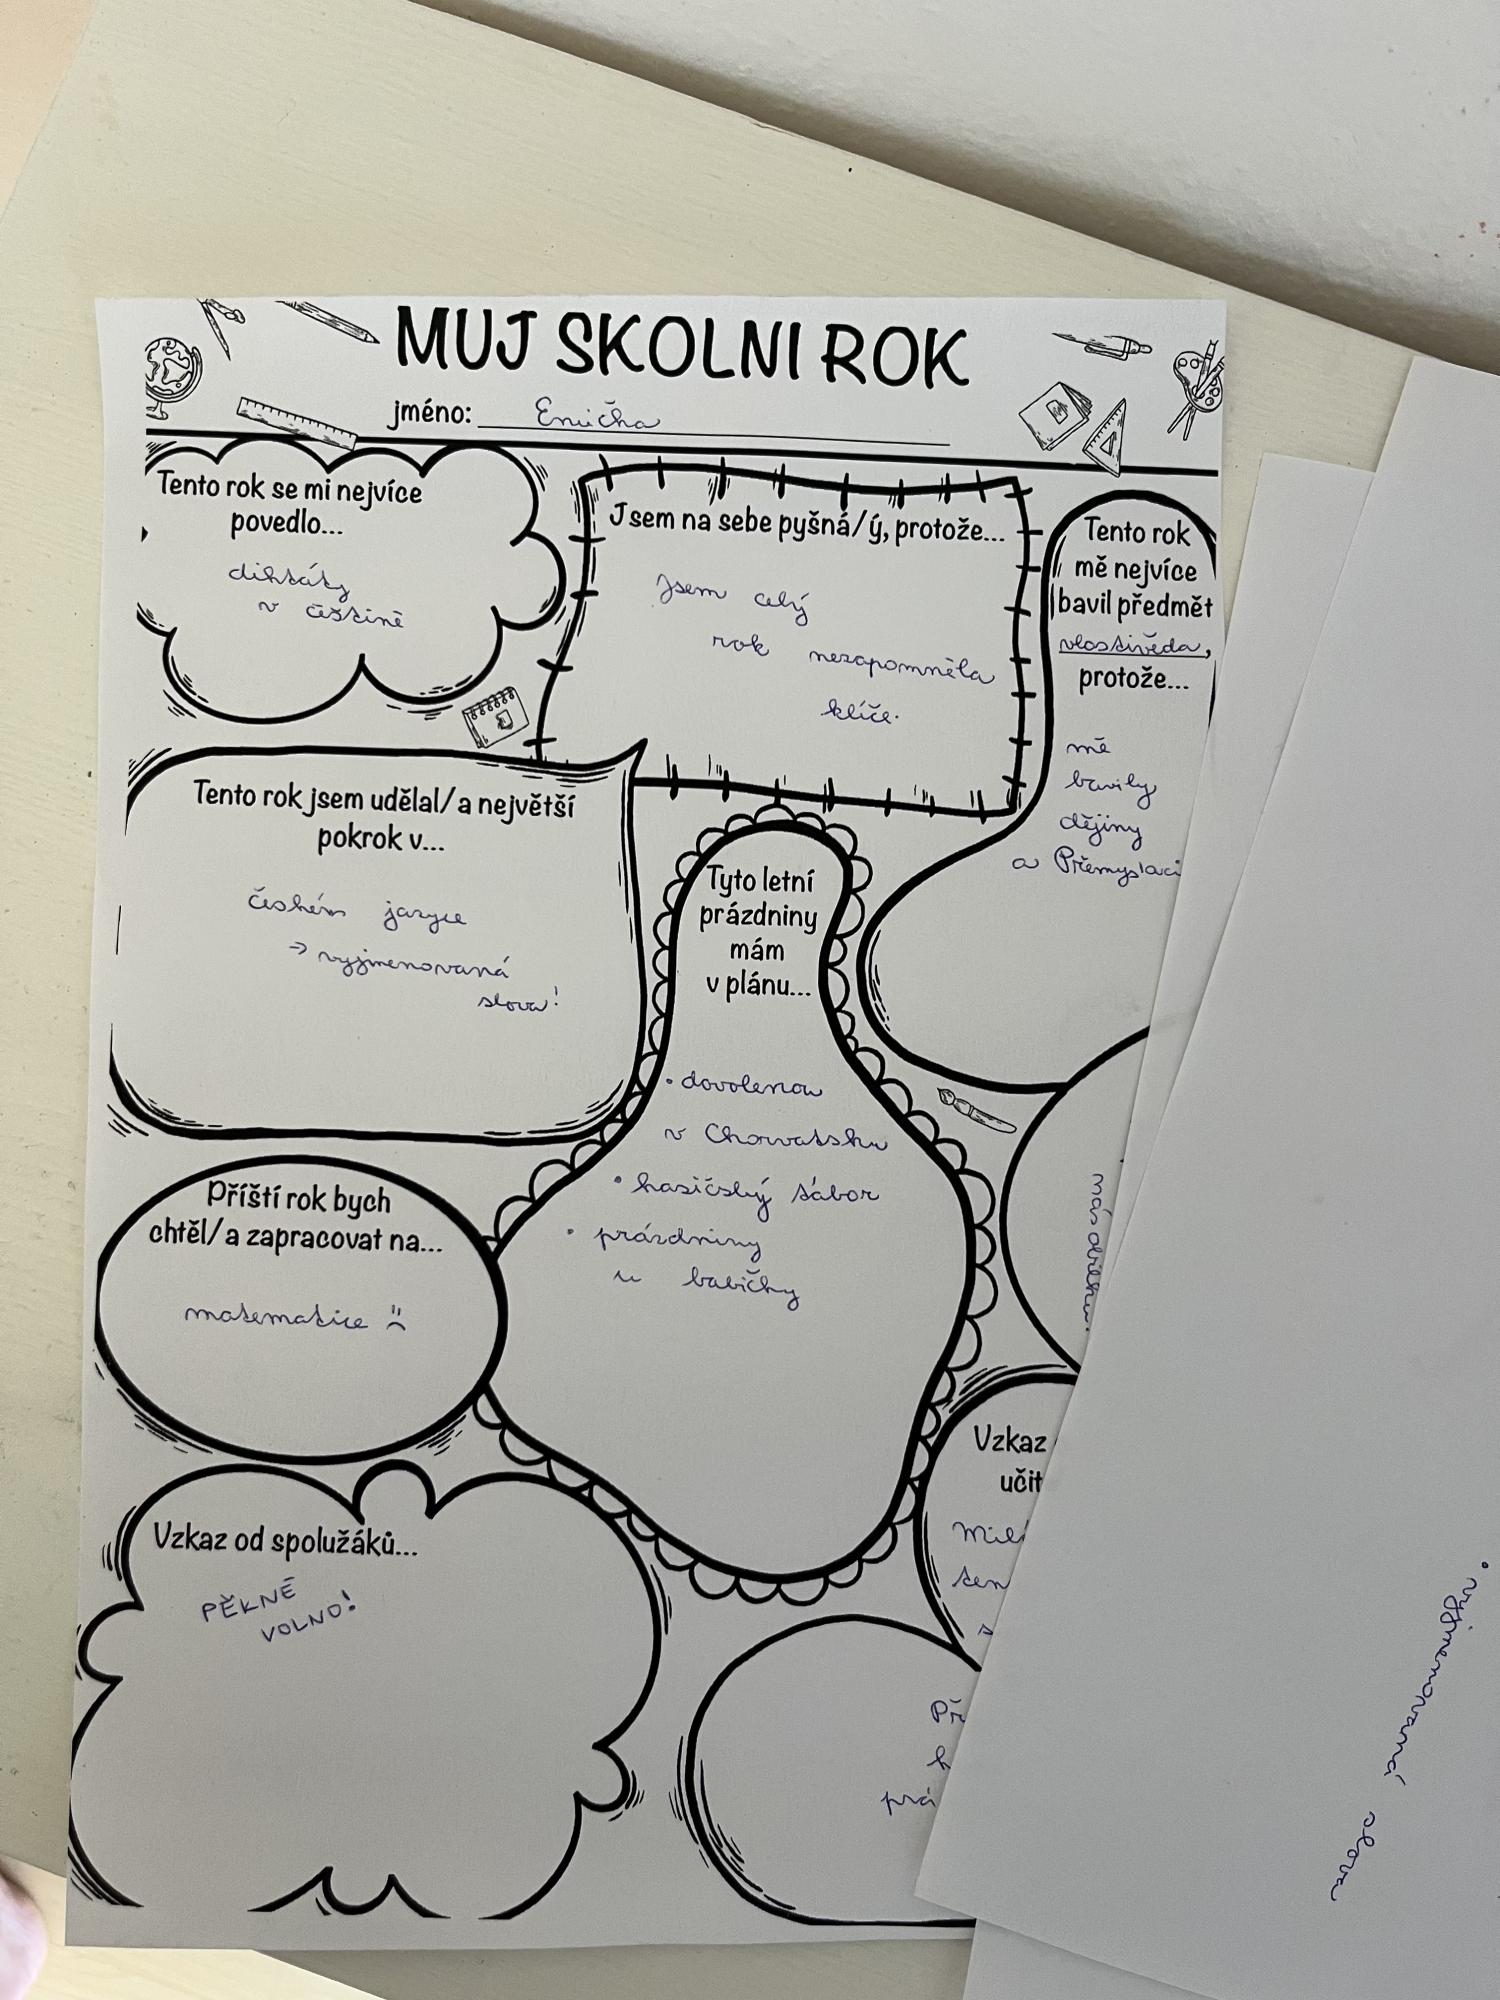 MUJ SKOLNI ROK
jméno: Emička
Tento rok se mi nejvíce
povedlo...
diktáty
v češtině
Jsem na sebe pyšná/ý, protože...
Jsem celý
rok nezapomněla
klíče.
Tento rok
mě nejvíce
bavil předmět
vlastivěda,
protože...
mě
bavily
dějiny
a Přemyslaci
Tento rok jsem udělal/a největší
pokrok v...
českém jazyce
→ vyjmenovaná
slova!
Tyto letní
prázdniny
mám
v plánu...
• dovolenou
v Chorvatsku
• hasičský tábor
• prázdniny
u babičky
Příští rok bych
chtěl/a zapracovat na...
matematice
Vzkaz od spolužáků...
PĚKNÉ
VOLNO!
Vzkaz
učit
Milá
ten
Př
k
prá
vyjmenovaná slova